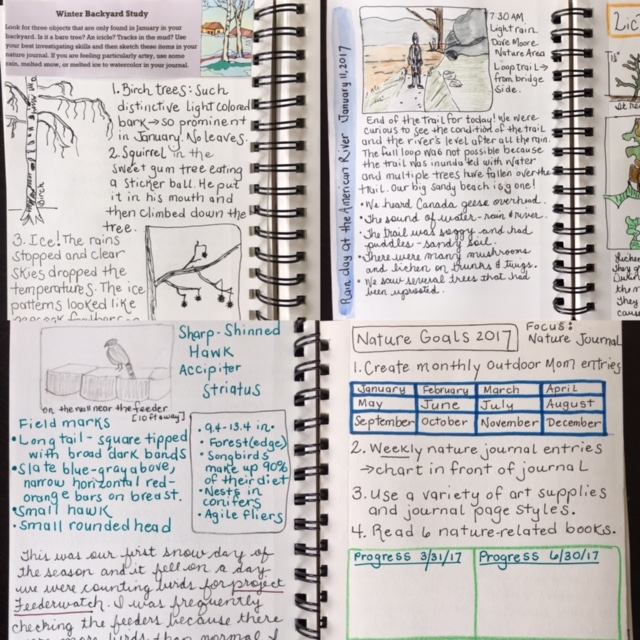 Winter Backyard Study
Look for three objects that are only found in January in your
backyard. Is it a bare tree? An icicle? Tracks in the mud? Use
your best investigating skills and then sketch these items in your
nature journal. If you are feeling particularly artsy, use some
rain, melted snow, or melted ice to watercolor in your journal.
1. Birch trees: Such
distinctive light colored
bark → so prominent
in January. No leaves.
2. Squirrel in the
sweet gum tree eating
a sticker ball. He put
it in his mouth and
then climbed down the
tree.
Birch
3. Ice! The rains
stopped and clear
skies dropped the
temperatures. The ice
patterns looked like
Rain day at the American River January 11, 2017
7:30 AM
Light rain.
Dave Moore
Nature Area
Loop trail →
from bridge
side.
End of the trail for today! We were
curious to see the condition of the trail
and the river's level after all the rain.
The full loop was not possible because
the trail was inundated with water
and multiple trees have fallen over the
trail. Our big sandy beach is gone!
• We heard Canada geese overhead.
• The sound of water - rain & river.
• The trail was soggy and had
puddles - sandy soil.
• There were many mushrooms
and lichen on trunks & twigs.
• We saw several trees that had
been uprooted.
Lic
Sharp-Shinned
Hawk
Accipiter
Striatus
on the wall near the feeder
[10 ft away]
Field marks
• Long tail - square tipped
with broad dark bands
• Slate blue-gray above,
narrow horizontal red-
orange bars on breast.
• Small hawk
• Small rounded head
• 9.4-13.4 in.
• Forest (edge)
• Songbirds
make up 90%
of their diet
• Nests in
conifers
• Agile fliers
This was our first snow day of
the season and it fell on a day
we were counting birds for project
Feederwatch. I was frequently
checking the feeders because there
were more birds than normal. I
Nature Goals 2017
Focus:
Nature Journal
1. Create monthly Outdoor Mom entries
January February March April
May June July August
September October November December
2. Weekly nature journal entries
→ chart in front of journal
3. Use a variety of art supplies
and journal page styles.
4. Read 6 nature-related books.
Progress 3/31/17 Progress 6/30/17